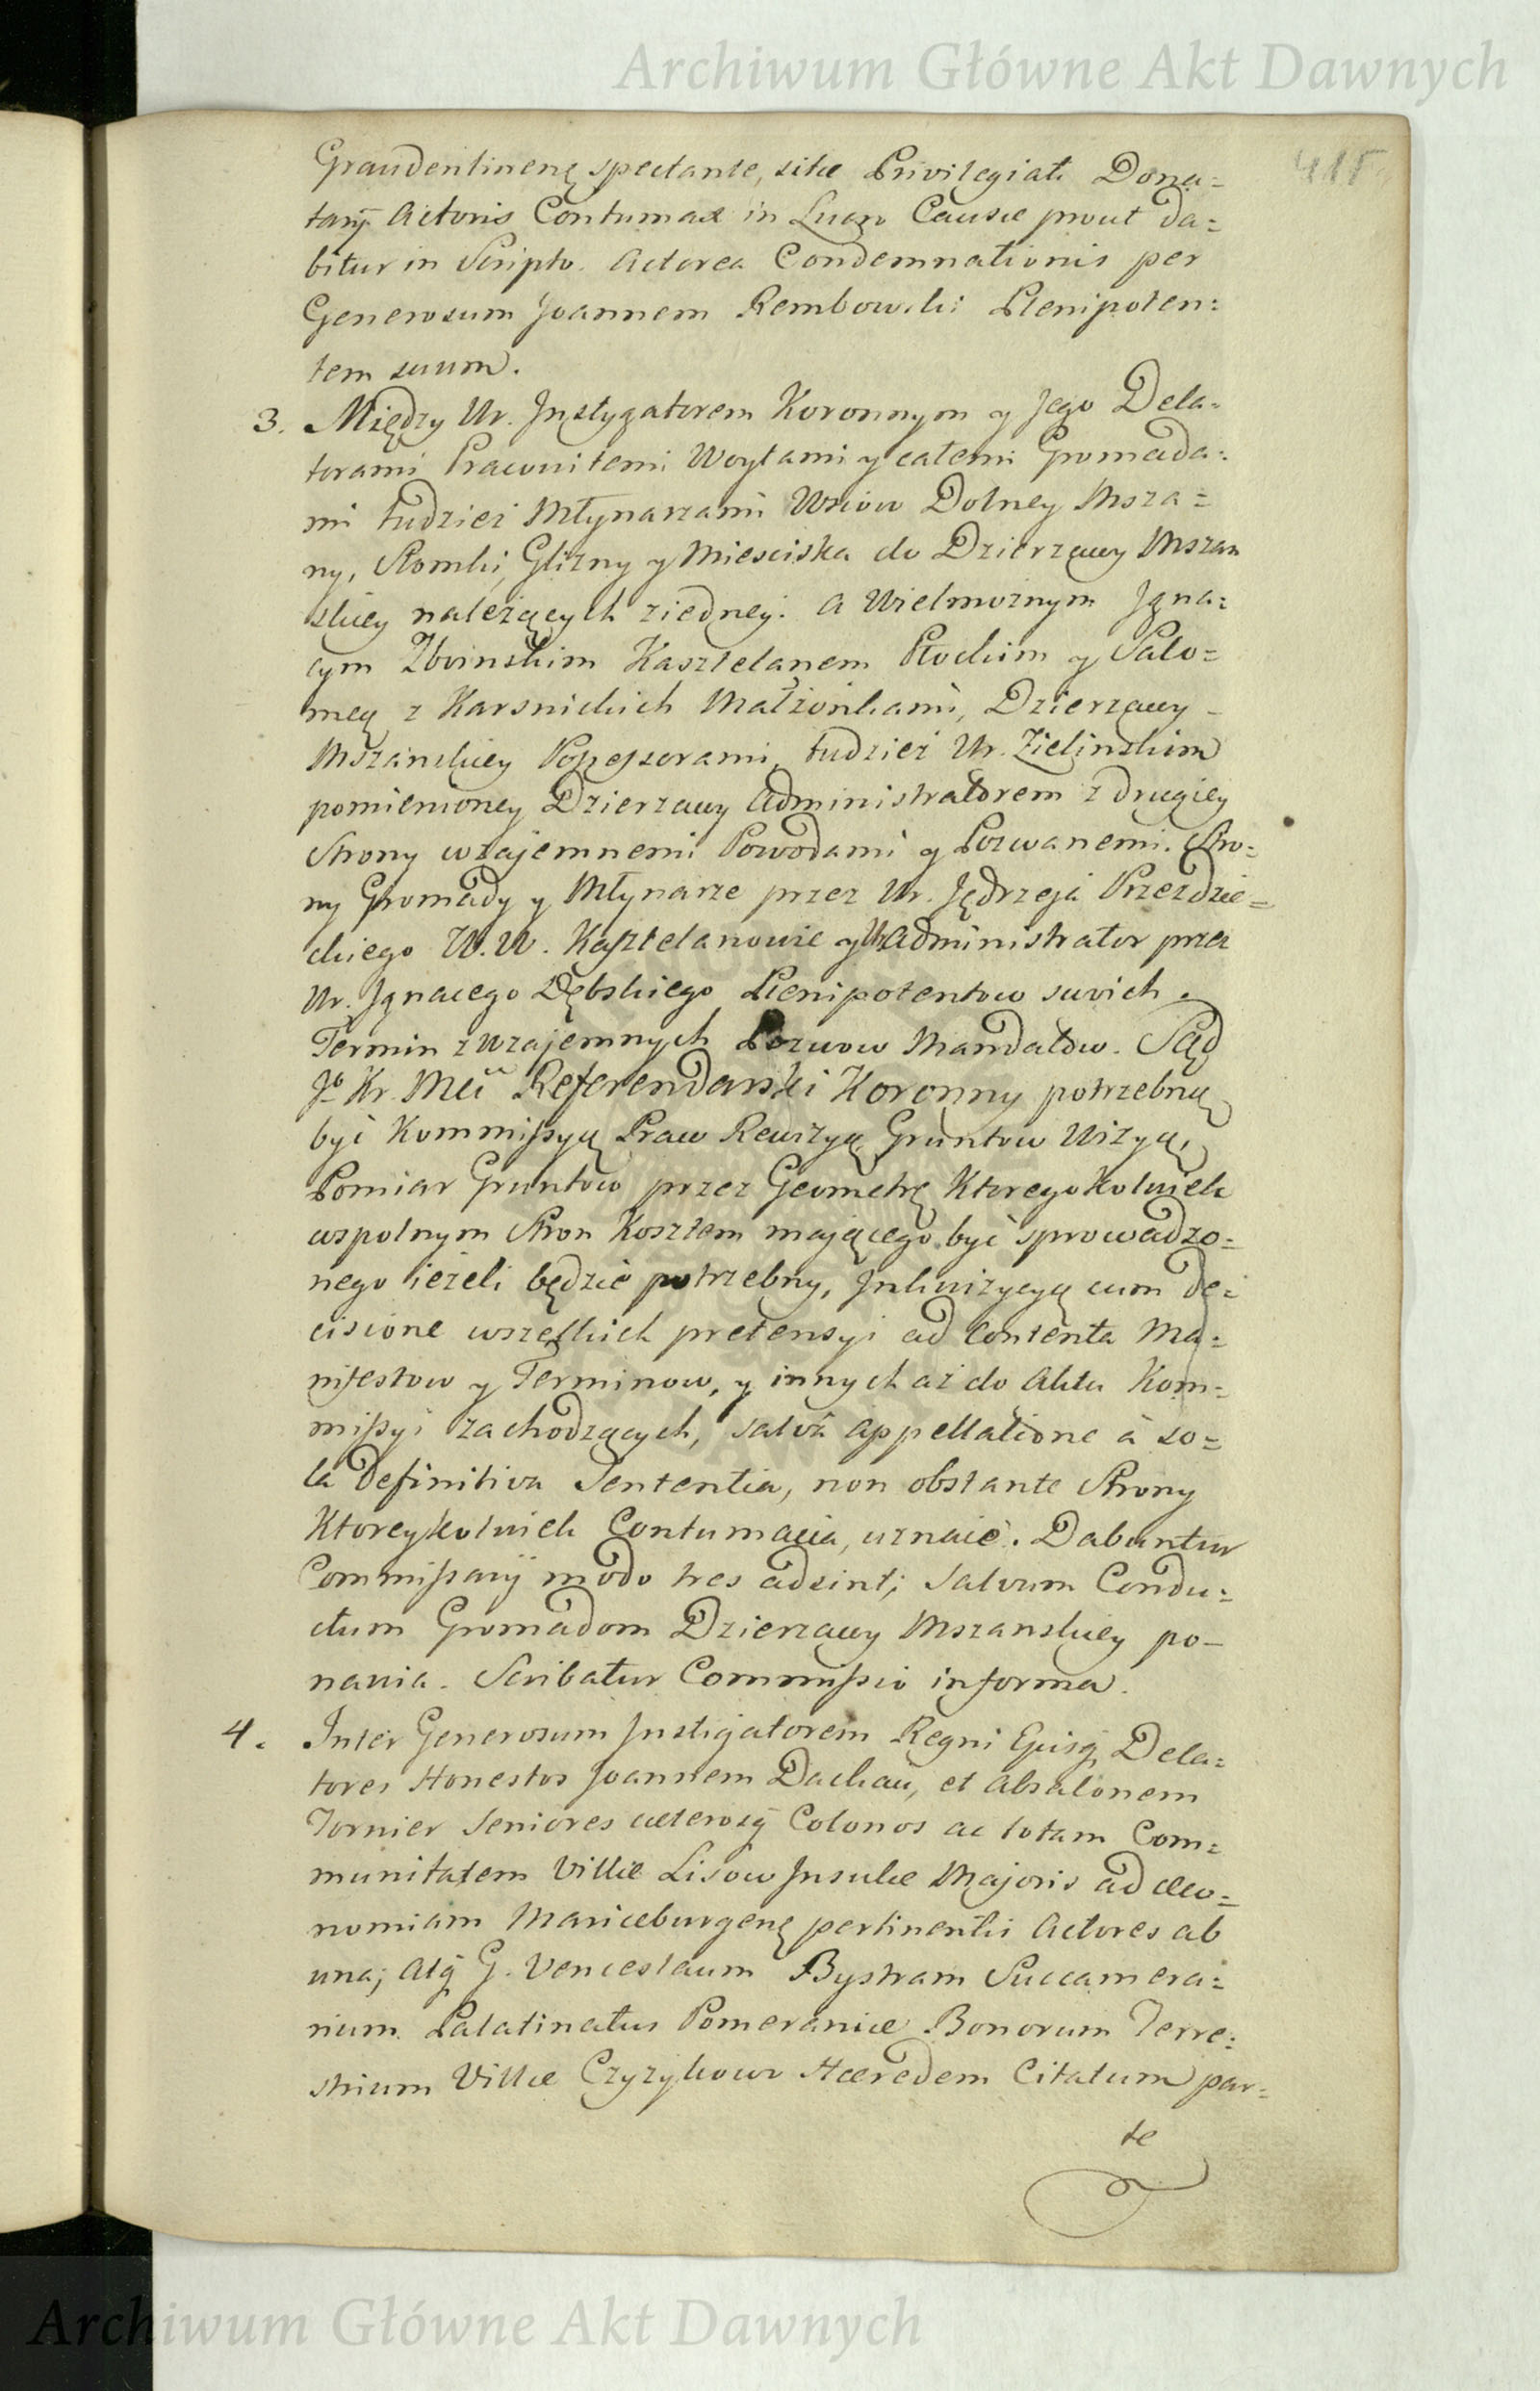 Archiwum Główne Akt Dawnych
415
Graudentinenę spectante, sitæ Privilegiati Dona=
tarÿ Actoris Contumax in Lucro Causæ prout da=
bitur in Scripto. Actorea Condemnationis per
Generosum Joannem Rembowski Plenipoten=
tem suum.
3. Między Ur. Instygatorem Koronnym y Jego Dela=
torami Pracowitemi Woytami y całemi Gromada=
mi tudzież Młynarzami Wsiow Dolney Msza=
ny, Słomki, Glizny y Miesciska do Dzierzawy Mszan
skiey należących ziedney. a Wielmożnym Igna=
cym Zboinskim Kasztelanem Płockim y Salo=
meą z Karsnickich Małżonkami, Dzierzawy
Mszanskiey Possessorami, tudzież Ur. Zielinskim
pomienioney Dzierzawy Administratorem z drugiey
Strony wzajemnemi Powodami y Pozwanemi. Stro=
ny Gromady y Młynarze przez Ur. Jędrzeja Przezdzie=
ckiego W.W. Kasztelanowie y Ur Administrator przez
Ur. Ignacego Dębskiego Plenipotentow swoich.
Termin z wzajemnych Pozwow Mandatow. Sąd
Jo Kr. Mci Referendarski Koronny potrzebną
być Kommissyą Praw Rewizyą, Gruntow Wizyą,
Pomiar Gruntow przez Geometrę Ktoregokolwiek
wspolnym Stron Kosztem mającego być sprowadzo=
nego ieżeli będzie potrzebny, Inkwizycyą cum de=
cisione wszelkich pretensyi ad Contenta Ma=
nifestow y Terminow, y innych aż do Aktu Kom=
missyi zachodzących, salvâ appellatione à so=
la definitiva Sententia, non obstante Strony
Ktoreykolwiek Contumacia, uznaie. Dabuntur
Commissarÿ modo tres adsint; Salvum Condu=
ctum Gromadom Dzierzawy Mszanskiey po=
nawia. Scribatur Commissio in forma.
4. Inter Generosum Instigatorem Regni Ejusq Dela=
tores Honestos Joannem Dackau, et Absalonem
Tornier Seniores cæterosq Colonos ac totam Com=
munitatem Villæ Lisow Insulæ Majoris ad Œco=
nomiam Mariæburgenę pertinentis Actores ab
una; Atq G. Venceslaum Bystram Succamera=
rium Palatinatus Pomeraniæ Bonorum Terre=
strium Villæ Czyzykowo Hæredem Citatum par=
te
Archiwum Główne Akt Dawnych